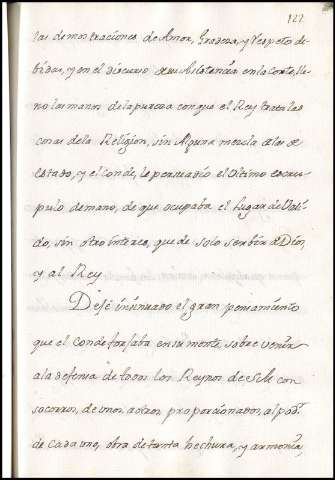 127
las demostraciones de Amor, Grandeza, y respeto de-
bidas, y en el discurso de su Asistencia en la Corte, lle-
no las manos de la pureza con que el Rey trata las
cosas de la Religion, sin Alguna mezcla de las de
estado, y el Conde, le persuadio el Ultimo escru-
pulo de mano, de que ocupaba el lugar de Vali-
do, sin otro interes, que de solo serbir a Dios,
y al Rey
Dejè insinuado el gran pensamiento
que el Conde forjaba en su mente sobre venir
a la defensa de todos los Reynos de S.M. con
socorros, de unos a otros proporcionados, al pod.r
de cada uno, obra de tanta hechura, y armonia,